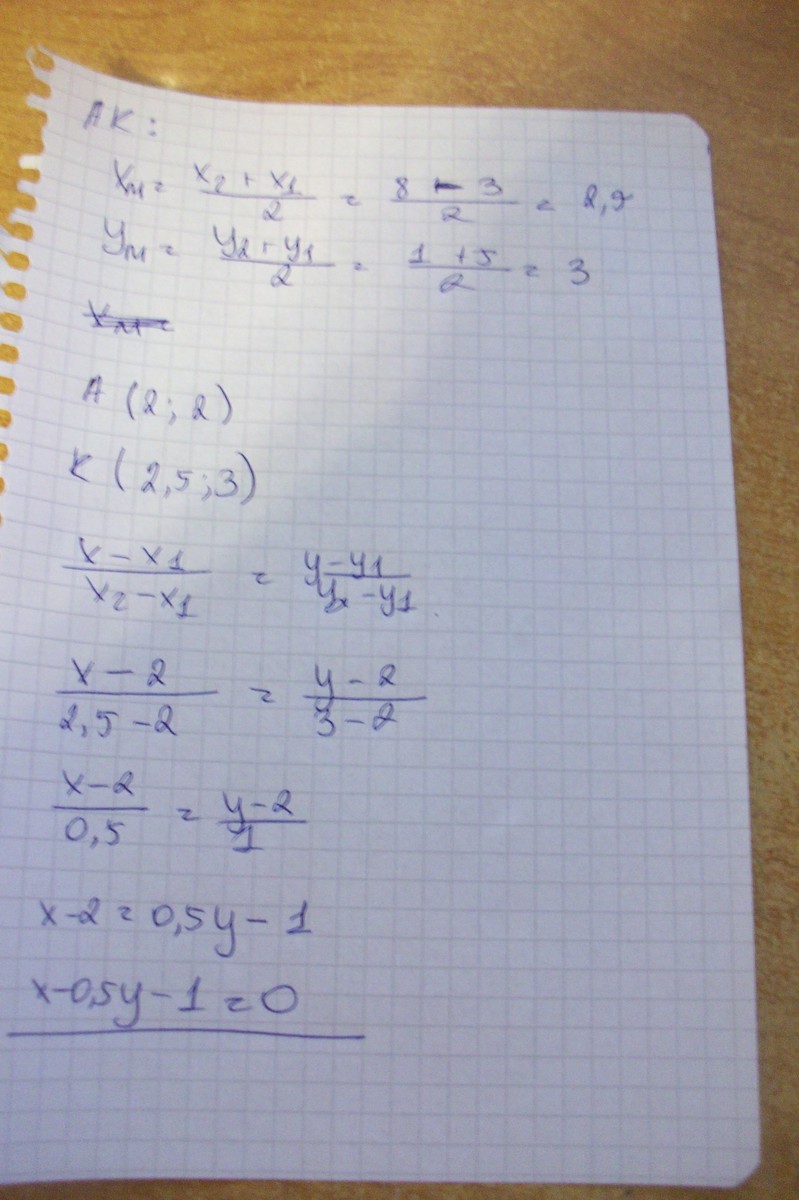 AK:
Xм = x₂ + x₁ / 2 = 8 - 3 / 2 = 2,5
Yм = y₂ + y₁ / 2 = 1 + 5 / 2 = 3
A (2; 2)
K (2,5; 3)
x - x₁ / x₂ - x₁ = y - y₁ / y₂ - y₁
x - 2 / 2,5 - 2 = y - 2 / 3 - 2
x - 2 / 0,5 = y - 2 / 1
x - 2 = 0,5y - 1
x - 0,5y - 1 = 0